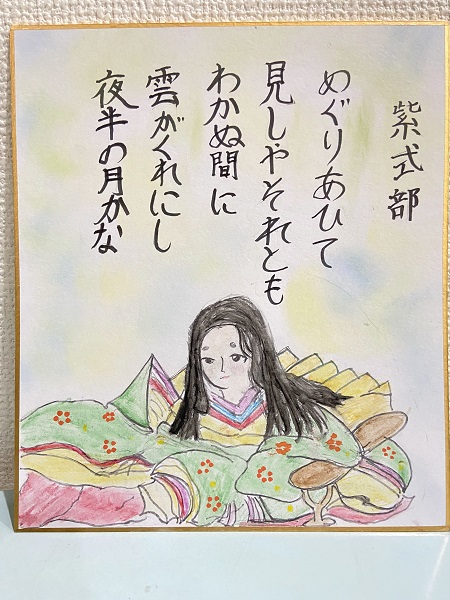 紫式部
めぐりあひて
見しやそれとも
わかぬ間に
雲がくれにし
夜半の月かな